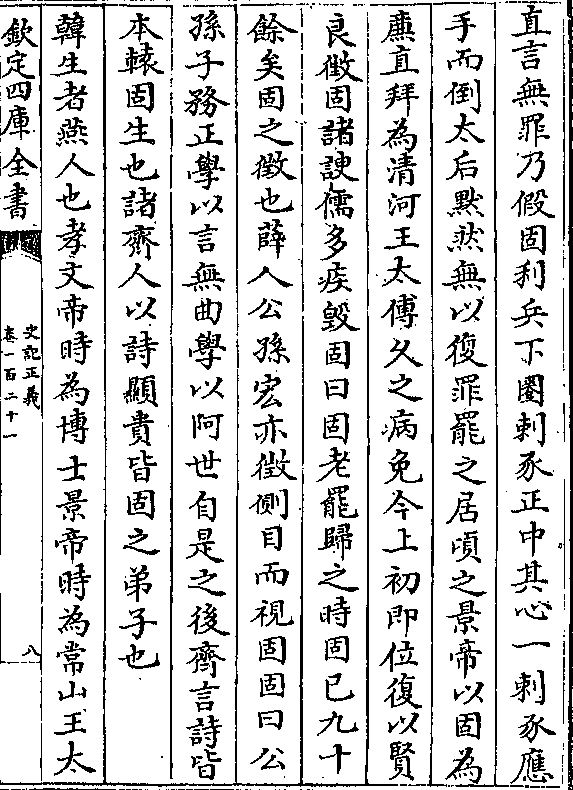 直言無罪乃假固利兵下圈刺豕正中其心一刺豕應
手而倒太后黙然無以復罪罷之居頃之景帝以固為
亷直拜為清河王太傅久之病免今上初即位復以賢
良徴固諸諛儒多疾毀固曰固老罷歸之時固已九十
餘矣固之徴也薛人公孫宏亦徴側目而視固固曰公
孫子務正學以言無曲學以阿世自是之後齊言詩皆
本轅固生也諸齊人以詩顯貴皆固之弟子也
韓生者燕人也孝文帝時為博士景帝時為常山王太
欽定四庫全書
史記正義
卷一百二十一
八